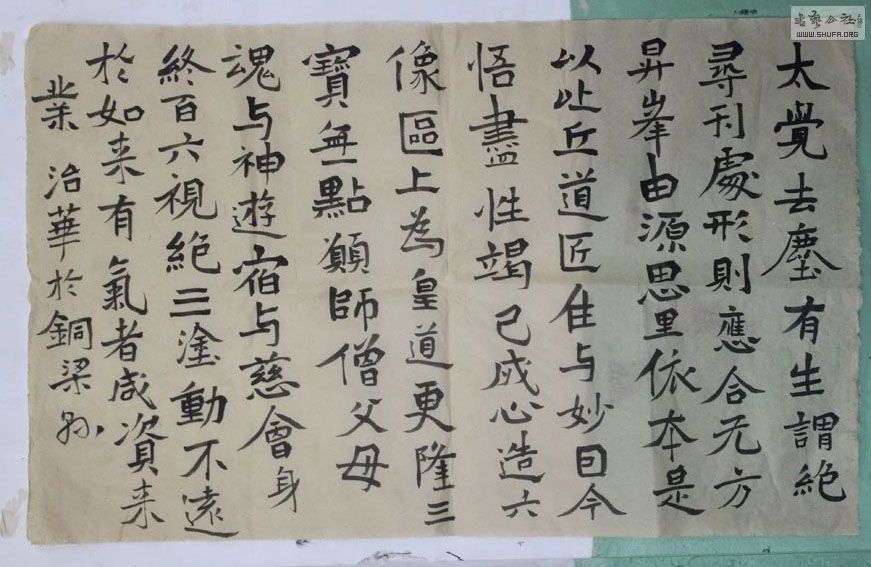 太覺去塵有生謂絶
尋刊處形則應合无方
昇峯由源思里依本是
以比丘道匠住与妙因今
悟盡性竭己成心造六
像區上為皇道更隆三
寶無點願師僧父母
魂与神遊宿与慈會身
終百六視絶三塗動不遠
於如来有氣者咸資来
業 治華於銅梁
书艺公社
WWW.SHUFA.ORG